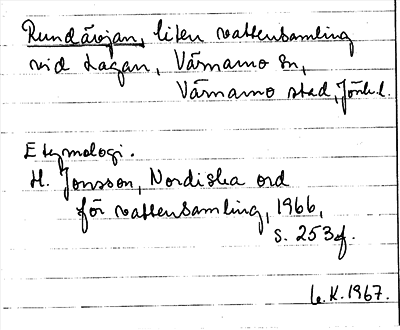 Rundävjan, liten vattensamling
vid Lagan, Värnamo sn,
Värnamo stad, Jönk.l.
Etymologi.
H. Jonsson, Nordiska ord
för vattensamling, 1966,
s. 253f.
L.K. 1967.